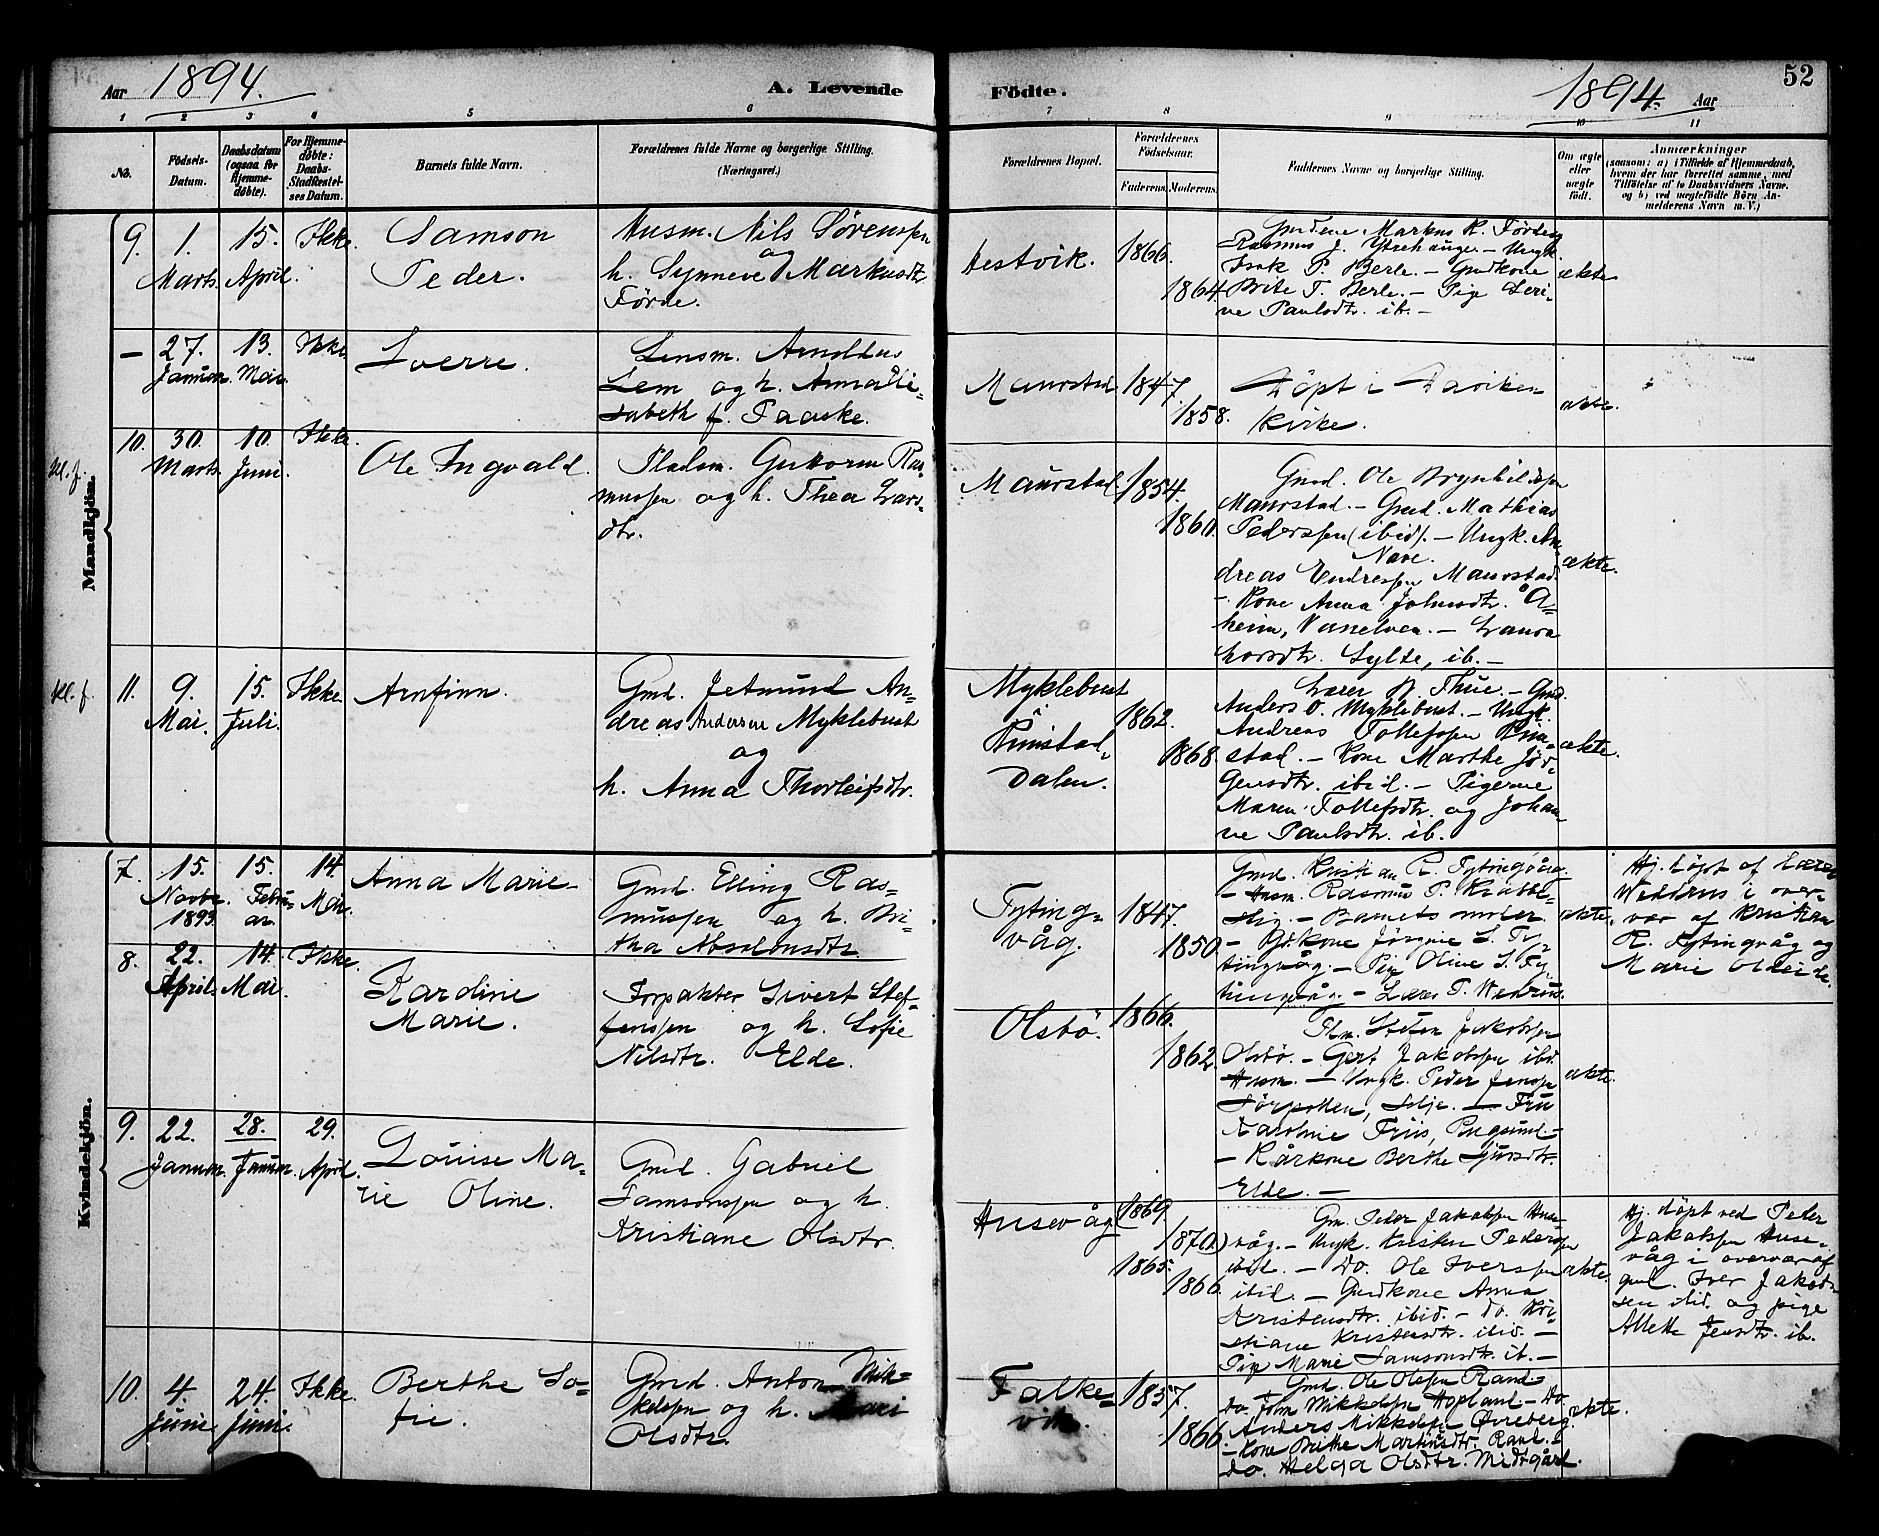 Aar 1894.
A. Levende Födte.
1894. Aar
52
1 2 3 4 5 6 7 8 9 10 11
No.
Födsels-
Datum.
Daabsdatum
(ogsaa for
Hjemme-
döbte).
For Hjemme-
döbte:
Daabs-
Stadfæstel-
ses Datum.
Barnets fulde Navn.
Forældrenes fulde Navne og borgerlige Stilling.
(Næringsvei.)
Forældrenes Bopæl.
Forældrenes
Födselsaar.
Faderens. Moderens.
Faddernes Navne og borgerlige Stilling.
Om ægte
eller
uægte
födt.
Anmærkninger
(saasom: a) i Tilfælde af Hjemmedaab,
hvem der har forrettet samme, med
Tilföielse af to Daabsvidners Navne,
og b) ved uægtefödte Börn An-
melderens Navn m. V.)
Mandkjön.
9. 1. Marts. 15. April. Ikke.
Samson
Peder.
Husm. Nils Sörenssen
og
h. Synneve Markusdtr
Förde.
Hestvik.
1866.
1864
Gmdene Markus R. Förde,
Rasmus J. Ytrehauge. – Ungk.
Isak P. Berle. – Gmdkone
Brite T. Berle. – Pige Seri-
ne Paulsdtr. ib. –
ækte
– 27. Januar. 13. Mai. Ikke
Sverre.
Lensm. Arnoldus
Lem og h. Anna Eli-
sabeth f. Taaske.
Maurstad
1847.
1858.
Döpt i Daviken
Kirke.
ækte.
Kl. f.
10. 30. Marts. 10. Juni. Ikke.
Ole Ingvald.
Pladsm. Guttorm Ras-
mussen og h. Thea Lars-
dtr.
Maurstad
1854.
1860.
Gmd. Ole Brynhildsen
Maurstad. – Gmd. Mathias
Pederssen (ibid). – Ungk. An-
Nave.
dreas Endressen Maurstad.
– Kone Anna Johnsdtr. Å-
heim, Vanelven. – Laura
Larsdtr. Sylte, ib. –
ækte.
Kl. f.
11. 9. Mai. 15. Juli. Ikke.
Arnfinn.
Gmd. Jetmund An-
dreas Andersen Myklebust
og
h. Anna Thorleifsdtr.
Myklebust
i
Rimstad-
dalen.
1862.
1868.
Lærer N. Thue. – Gmd.
Anders O. Myklebust. – Ungk.
Andreas Tollefssen Rim-
stad. – Kone Marthe Jör-
gensdtr. ibid. – Pigerne
Maren Tollefsdtr. og Johan-
ne Paulsdtr. ib.
ækte.
Kvindekjön.
7. 15. Novbr. 1893. 15. Febru-
ar. 14. Mai.
Anna Marie
Gmd. Elling Ras-
mussen og h. Bri-
tha Absalonsdtr.
Tyting-
våg.
1847.
1850.
Gmd. Kristian R. Tytingvåg.
– Husm. Rasmus P. Krabbe-
stig. – Barnets moder
– Gdkone Jörgine S. Ty-
tingvåg. – Pige Oline S. Ty-
tingvåg. – Lærer P. Wedvus.
ækte.
Hj. döpt af Lærer
Wedvus i over-
vær af Kristian
R. Tytingvåg og
Marie Oldeide.
8. 22. April. 14. Mai. Ikke.
Karoline
Marie.
Forpakter Sivert Stef-
fenssen og h. Sofie
Nilsdtr. Elde.
Olsbö.
1866.
1862.
Plm. Steten Jakobssen
Olsbö. – Gert Jakobssen ibd.
Husm. – Ungk. Peder Jenssen
Sörpollen, Selje. – Fru
Karoline Friis, Rugsund. –
– Kårkone Berthe Sjursdtr.
Elde. –
ækte.
9. 22. Januar. 28. Januar. 29. April.
Louise Ma-
rie Oline.
Gmd. Gabriel
Samsonssen og h.
Kristiane Olsdtr.
Husevåg
1869.
1870)
1865.
1866.
Gm. Peder Jakobssen Huse-
våg. – Ungk. Kristen Pederssen
ibid. – Do. Ole Iverssen
ibid. – Gmdkone Anna
Kristensdtr. ibid. – do. Kri-
stiane Kristensdtr. ibid. –
Pige Marie Samsonsdtr. ib. –
ækte.
Hj. döpt ved Peter
Jakobssen Huse-
våg i overvær af
gmd. Iver Jakob-
sen ibid. og pige
Alette Jensdtr. ib.
10. 4. Junie 24. Juni. Ikke.
Berthe So-
fie.
Gmd. Anton Mik-
kelssen og h. Mari
Olsdtr.
Falke-
vik.
1857.
1866.
Gmd. Ole Olssen Rand. –
Do. John Mikkelsen Hopland. – Do.
Anders Mikkelssen Övreberg.
– Kone Brithe Martinusdtr. Rand. –
Do. Helga Olsdtr. Midtgård.
ækte.